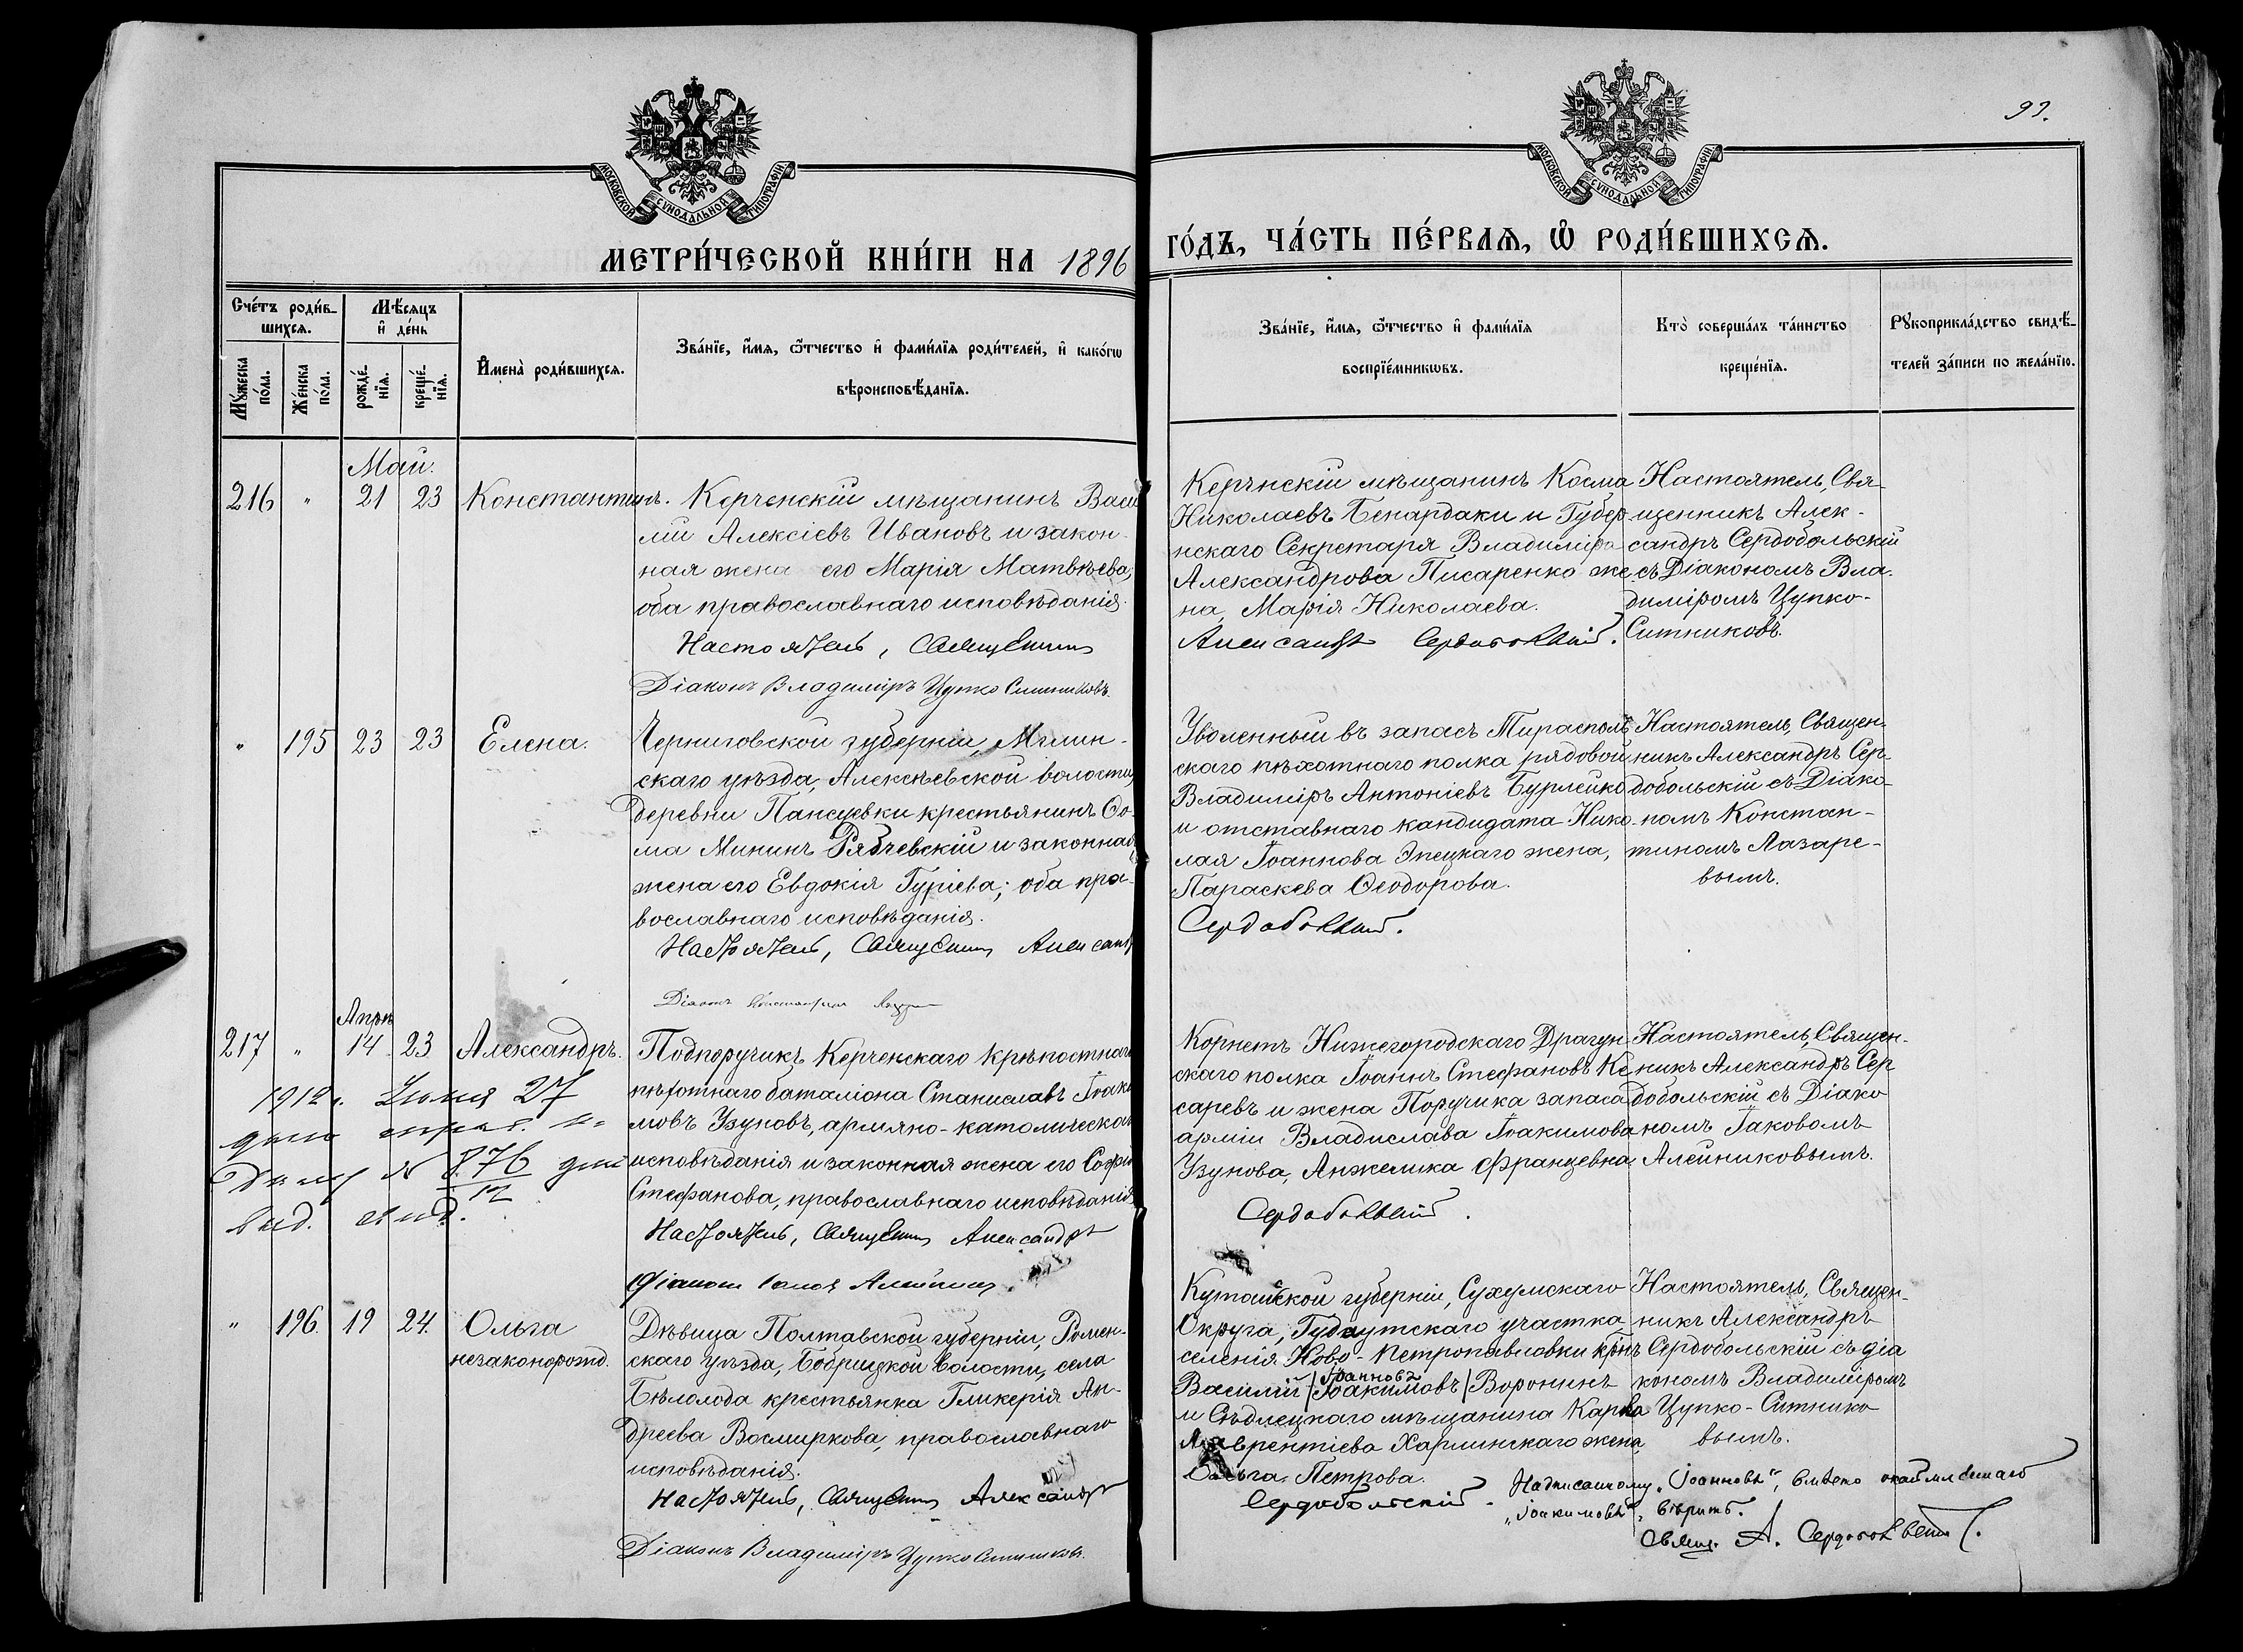 93.
МОСКОВСКОЙ СѴНОДАЛЬНОЙ ТИПОГРАФІИ
МОСКОВСКОЙ СѴНОДАЛЬНОЙ ТИПОГРАФІИ
МЕТРИ́ЧЕСКОЙ КНИ́ГИ НА 1896 ГО́ДЪ, ЧА́СТЬ ПЕ́РВАѦ, Ѡ҆ РОДИ́ВШИХСѦ.
Сче́тъ роди́в-
шихсѧ.
Мѹ́жеска по́ла.
Же́нска по́ла.
Мѣ́сѧцъ
и҆ де́нь
рожде́-
нїѧ.
креще́-
нїѧ.
И҆мена̀ роди́вшихсѧ.
Зва́нїе, и҆́мѧ, ѻ҆́тчество и҆ фами́лїѧ роди́телей, и҆ како́гѡ
вѣроисповѣ́данїѧ.
Зва́нїе, и҆́мѧ, ѻ҆́тчество и҆ фами́лїѧ
воспрїе́мникѡвъ.
Кто̀ соверша́лъ та́инство
креще́нїѧ.
Рѹкоприкла́дство свидѣ́-
телей за́писи по жела́нїю.
Май.
216 " 21 23 Константинъ.
Керченскій мѣщанинъ Васи
лій Алексіевъ Ивановъ и закон-
ная жена его Марія Матвѣева;
оба православнаго исповѣданія.
Настоятель, Священникъ
Діаконъ Владиміръ Цупко Ситниковъ.
Керчнскій мѣщанинъ Косма
Николаевъ Бенардаки и Губер-
нскаго Секретаря Владиміра
Александрова Писаренко же-
на, Марія Николаева.
Александръ Сердобольскій.
Настоятель, Свя-
щенникъ Алек-
сандръ Сердобольскій
съ Діакономъ Вла-
диміромъ Цупко-
Ситниковъ.
" 195 23 23 Елена.
Черниговской губерніи, Мглин-
скаго уѣзда, Алексѣевской волости,
деревни Пансуевки крестьянинъ Ѳо-
ма Мининъ Рябчевскій и законная
жена его Евдокія Гуріева; оба пра-
вославнаго исповѣданія.
Настоятель, Священникъ Александръ
Діаконъ Константинъ
Уволенный въ запасъ Тирасполь-
скаго пѣхотнаго полка рядовой
Владиміръ Антоніевъ Бурлейко
и отставнаго кандидата Нико-
лая Іоаннова Энецкаго жена,
Параскева Ѳеодорова.
Сердобольскій.
Настоятель, Священ-
никъ Александръ Сер-
добольскій съ Діако-
номъ Констан-
тиномъ Лазаре-
вымъ.
Апрѣ
217 " 14 23 Александръ.
1912 г. Іюня 27
дано
№ 876
вид. свид.
Подпоручикъ Керченскаго крѣпостнаго
пѣхотнаго баталіона Станиславъ Іоаки
мовъ Узуновъ, армяно-католическаго
исповѣданія и законная жена его Софія
Стефанова, православнаго исповѣданія.
Настоятель, Священникъ Александръ
Діаконъ Іаковъ Алейниковъ
Корнетъ Нижегородскаго Драгун-
скаго полка Іоаннъ Стефановъ Ке-
саревъ и жена Поручика запаса
арміи Владислава Іоакимова
Узунова, Анжелика Францевна.
Сердобольскій.
Настоятель, Священ-
никъ Александръ Сер
добольскій съ Діако
номъ Іаковомъ
Алейниковымъ.
" 196. 19 24. Ольга
незаконорожд.
Дѣвица Полтавской губерніи, Ромен-
скаго уѣзда, Бобрицкой волости, села
Бѣлолода крестьянка Гликерія Ан-
дреева Восмиркова, православнаго
исповѣданія.
Настоятель, Священникъ Александръ
Діаконъ Владиміръ Цупко Ситниковъ.
Кутаиской губерніи, Сухумскаго
Округа, Гудаутскаго участка
селенія Ново-Петропавловки крнъ
Іоанновъ
Василій /Іоакимовъ/ Воронинъ
и Сѣдлецкаго мѣщанина Карпа
Лаврентіева Харлинскаго жена
Ольга Петрова.
Сердобольскій.
Настоятель, Священ-
никъ Александръ
Сердобольскій съ діа
кономъ Владиміромъ
Цупко-Ситнико
вымъ.
Надписанному „Іоанновъ", вмѣсто
„Іоакимовъ", вѣрить.
Свящ. А. Сердобольскій.